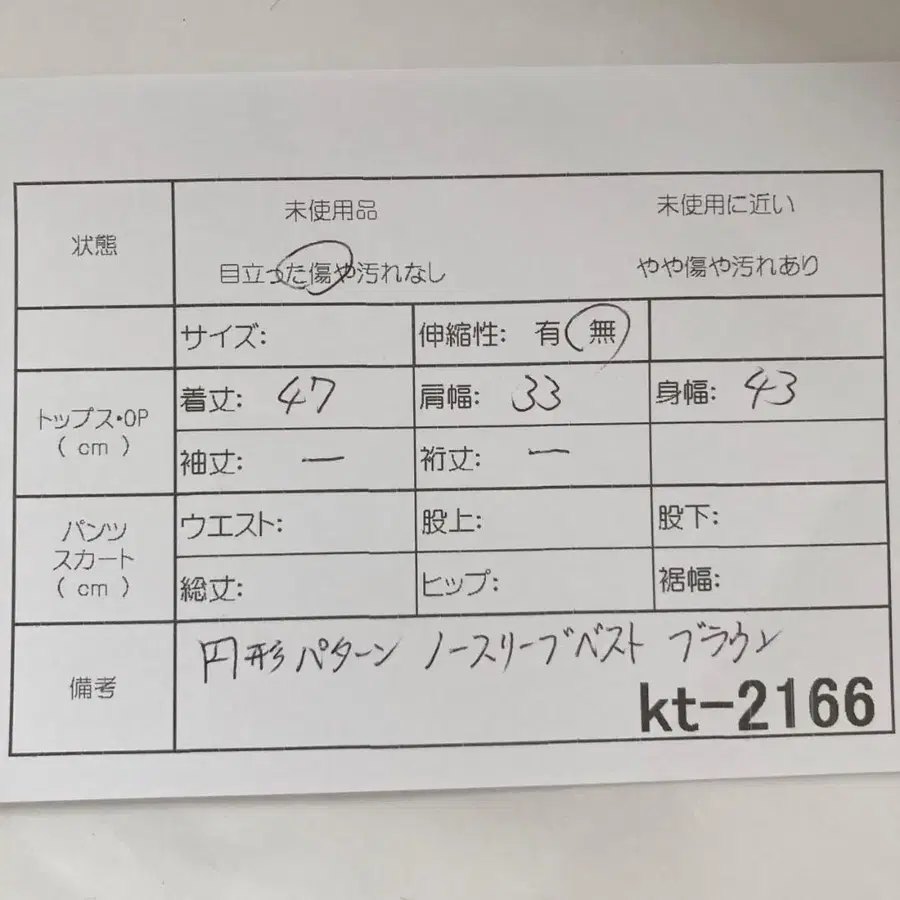 状態
未使用品 未使用に近い
目立った傷や汚れなし やや傷や汚れあり
サイズ: 伸縮性: 有 無
トップス・OP
( cm )
着丈: 47 肩幅: 33 身幅: 43
袖丈: ー 裄丈: ー
パンツ
スカート
( cm )
ウエスト: 股上: 股下:
総丈: ヒップ: 裾幅:
備考
円形パターン ノースリーブベスト ブラウン
kt-2166